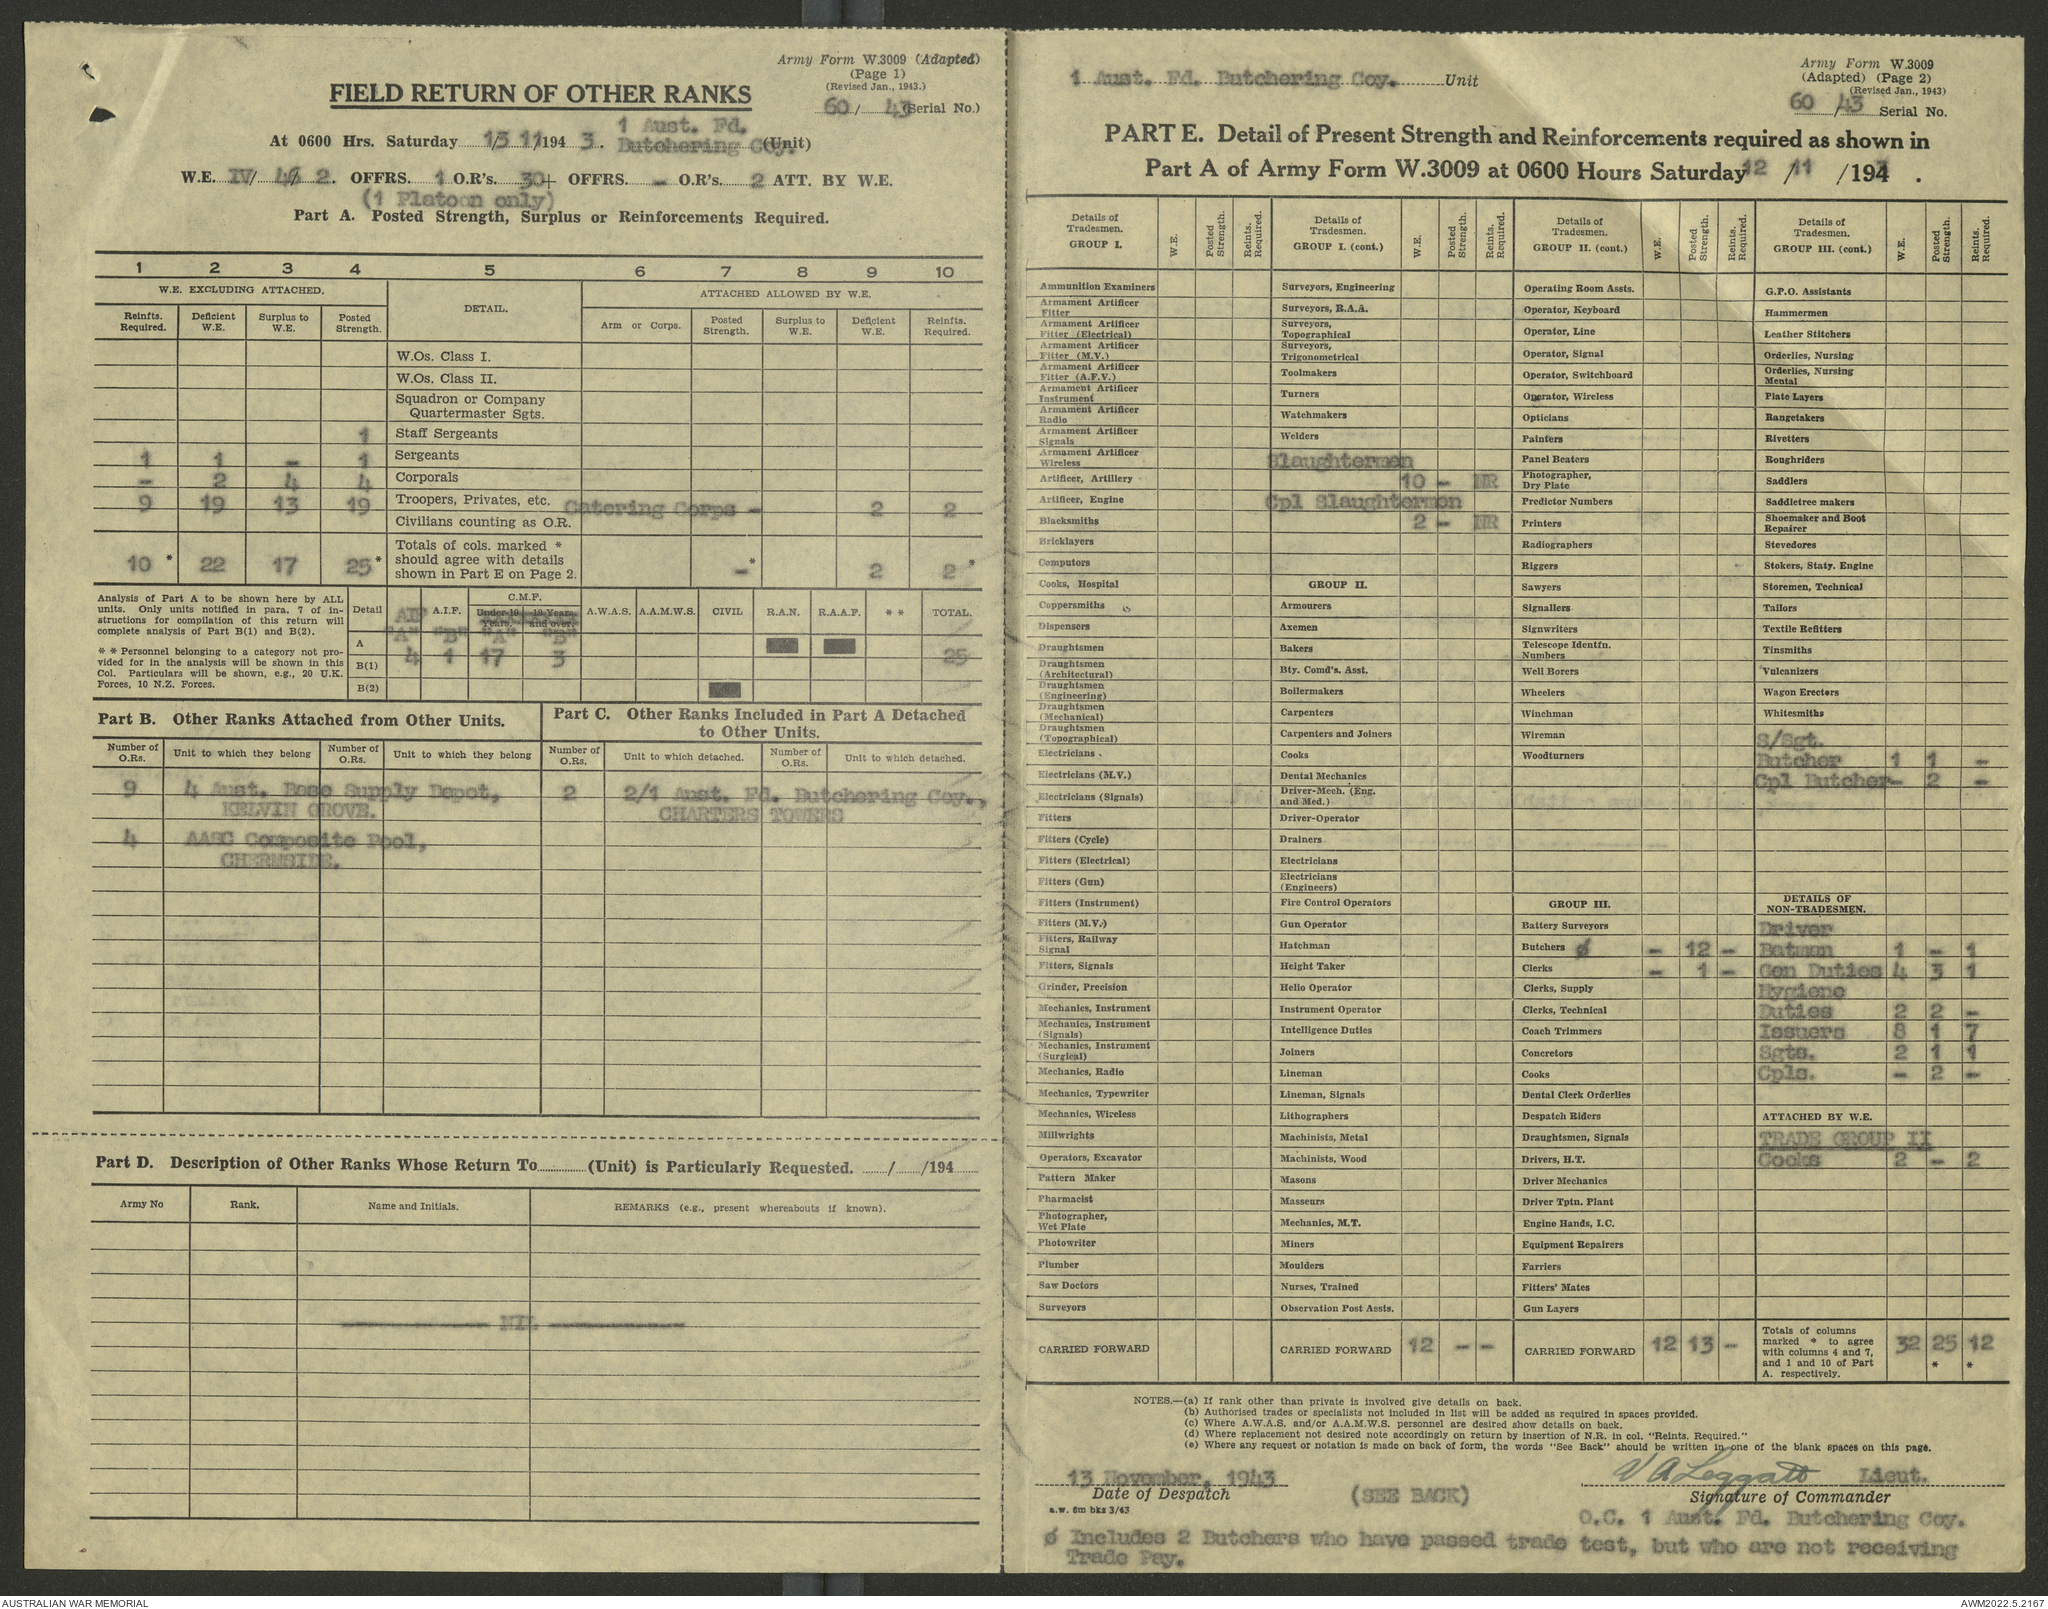 Army Form W.3009 (Adapted)
(Page 1)
(Revised Jan., 1943.)
60/ 43 (Serial No.)
FIELD RETURN OF OTHER RANKS
1 Aust. Fd.
At 0600 Hrs. Saturday 13/11/194 3. Butchering Coy. (Unit)
W.E. IV/ / 2. OFFRS. 1 O.R's. 30+ OFFRS. - O.R's. 2 ATT. BY W.E.
(1 Platoon only)
Part A. Posted Strength, Surplus or Reinforcements Required.
1 2 3 4 5 6 7 8 9 10
W.E. EXCLUDING ATTACHED. DETAIL. ATTACHED ALLOWED BY W.E.
Reinfts. Required. Deficient W.E. Surplus to W.E. Posted Strength. Arm or Corps. Posted Strength. Surplus to W.E. Deficient W.E. Reinfts. Required.
W.Os. Class I.
W.Os. Class II.
Squadron or Company
Quartermaster Sgts.
1 Staff Sergeants
1 1 - 1 Sergeants
- 2 4 4 Corporals
9 19 13 19 Troopers, Privates, etc. Catering Corps - 2 2
Civilians counting as O.R.
10 * 22 17 25 * Totals of cols. marked * should agree with details shown in Part E on Page 2. - * 2 2 *
Analysis of Part A to be shown here by ALL
units. Only units notified in para. 7 of in-
structions for compilation of this return will
complete analysis of Part B(1) and B(2).
* * Personnel belonging to a category not pro-
vided for in the analysis will be shown in this
Col. Particulars will be shown, e.g., 20 U.K.
Forces, 10 N.Z. Forces.
Detail AIF A.I.F. C.M.F. Under 19 Years. 19 Years and over. A.W.A.S. A.A.M.W.S. CIVIL R.A.N. R.A.A.F. * * TOTAL.
"A" "B" "A" "B"
A 4 1 17 3 25
B(1)
B(2)
Part B. Other Ranks Attached from Other Units.
Number of O.Rs. Unit to which they belong Number of O.Rs. Unit to which they belong
9 4 Aust. Base Supply Depot,
KELVIN GROVE.
4 AASC Composite Pool,
CHERMSIDE.
Part C. Other Ranks Included in Part A Detached
to Other Units.
Number of O.Rs. Unit to which detached. Number of O.Rs. Unit to which detached.
2 2/1 Aust. Fd. Butchering Coy.,
CHARTERS TOWERS
Part D. Description of Other Ranks Whose Return To (Unit) is Particularly Requested. / /194
Army No Rank. Name and Initials. REMARKS (e.g., present whereabouts if known).
NIL
1 Aust. Fd. Butchering Coy. Unit
Army Form W.3009
(Adapted) (Page 2)
(Revised Jan., 1943)
60 /43 Serial No.
PART E. Detail of Present Strength and Reinforcements required as shown in
Part A of Army Form W.3009 at 0600 Hours Saturday 12 / 11 /194 .
Details of Tradesmen. GROUP I. W.E. Posted Strength. Reints. Required.
Ammunition Examiners
Armament Artificer Fitter
Armament Artificer Fitter (Electrical)
Armament Artificer Fitter (M.V.)
Armament Artificer Fitter (A.F.V.)
Armament Artificer Instrument
Armament Artificer Radio
Armament Artificer Signals
Armament Artificer Wireless
Artificer, Artillery
Artificer, Engine
Blacksmiths
Bricklayers
Computors
Cooks, Hospital
Coppersmiths
Dispensers
Draughtsmen
Draughtsmen (Architectural)
Draughtsmen (Engineering)
Draughtsmen (Mechanical)
Draughtsmen (Topographical)
Electricians
Electricians (M.V.)
Electricians (Signals)
Fitters
Fitters (Cycle)
Fitters (Electrical)
Fitters (Gun)
Fitters (Instrument)
Fitters (M.V.)
Fitters, Railway Signal
Fitters, Signals
Grinder, Precision
Mechanics, Instrument
Mechanics, Instrument (Signals)
Mechanics, Instrument (Surgical)
Mechanics, Radio
Mechanics, Typewriter
Mechanics, Wireless
Millwrights
Operators, Excavator
Pattern Maker
Pharmacist
Photographer, Wet Plate
Photowriter
Plumber
Saw Doctors
Surveyors
CARRIED FORWARD
Details of Tradesmen. GROUP I. (cont.) W.E. Posted Strength. Reints. Required.
Surveyors, Engineering
Surveyors, R.A.A.
Surveyors, Topographical
Surveyors, Trigonometrical
Toolmakers
Turners
Watchmakers
Welders
Slaughtermen
10 - NR
Cpl Slaughtermen
2 - NR
GROUP II.
Armourers
Axemen
Bakers
Bty. Comd's. Asst.
Boilermakers
Carpenters
Carpenters and Joiners
Cooks
Dental Mechanics
Driver-Mech. (Eng. and Med.)
Driver-Operator
Drainers
Electricians
Electricians (Engineers)
Fire Control Operators
Gun Operator
Hatchman
Height Taker
Helio Operator
Instrument Operator
Intelligence Duties
Joiners
Lineman
Lineman, Signals
Lithographers
Machinists, Metal
Machinists, Wood
Masons
Masseurs
Mechanics, M.T.
Miners
Moulders
Nurses, Trained
Observation Post Assts.
CARRIED FORWARD 12 - -
Details of Tradesmen. GROUP II. (cont.) W.E. Posted Strength. Reints. Required.
Operating Room Assts.
Operator, Keyboard
Operator, Line
Operator, Signal
Operator, Switchboard
Operator, Wireless
Opticians
Painters
Panel Beaters
Photographer, Dry Plate
Predictor Numbers
Printers
Radiographers
Riggers
Sawyers
Signallers
Signwriters
Telescope Identfn. Numbers
Well Borers
Wheelers
Winchman
Wireman
Woodturners
GROUP III.
Battery Surveyors
Butchers ø - 12 -
Clerks - 1 -
Clerks, Supply
Clerks, Technical
Coach Trimmers
Concretors
Cooks
Dental Clerk Orderlies
Despatch Riders
Draughtsmen, Signals
Drivers, H.T.
Driver Mechanics
Driver Tptn. Plant
Engine Hands, I.C.
Equipment Repairers
Farriers
Fitters' Mates
Gun Layers
CARRIED FORWARD 12 13 -
Details of Tradesmen. GROUP III. (cont.) W.E. Posted Strength. Reints. Required.
G.P.O. Assistants
Hammermen
Leather Stitchers
Orderlies, Nursing
Orderlies, Nursing Mental
Plate Layers
Rangetakers
Rivetters
Roughriders
Saddlers
Saddletree makers
Shoemaker and Boot Repairer
Stevedores
Stokers, Staty. Engine
Storemen, Technical
Tailors
Textile Refitters
Tinsmiths
Vulcanizers
Wagon Erectors
Whitesmiths
S/Sgt.
Butcher 1 1 -
Cpl Butcher - 2 -
DETAILS OF NON-TRADESMEN.
Driver
Batmen 1 - 1
Gen Duties 4 3 1
Hygiene
Duties 2 2 -
Issuers 8 1 7
Sgts. 2 1 1
Cpls. - 2 -
ATTACHED BY W.E.
TRADE GROUP II
Cooks 2 - 2
Totals of columns marked * to agree with columns 4 and 7, and 1 and 10 of Part A. respectively. 32 25 * 12 *
NOTES.—(a) If rank other than private is involved give details on back.
(b) Authorised trades or specialists not included in list will be added as required in spaces provided.
(c) Where A.W.A.S. and/or A.A.M.W.S. personnel are desired show details on back.
(d) Where replacement not desired note accordingly on return by insertion of N.R. in col. "Reints. Required."
(e) Where any request or notation is made on back of form, the words "See Back" should be written in one of the blank spaces on this page.
13 November, 1943 V A Leggatt Lieut.
Date of Despatch (SEE BACK) Signature of Commander
a.w. 6m bks 3/43
O.C. 1 Aust. Fd. Butchering Coy.
ø Includes 2 Butchers who have passed trade test, but who are not receiving
Trade Pay.
AUSTRALIAN WAR MEMORIAL AWM2022.5.2167